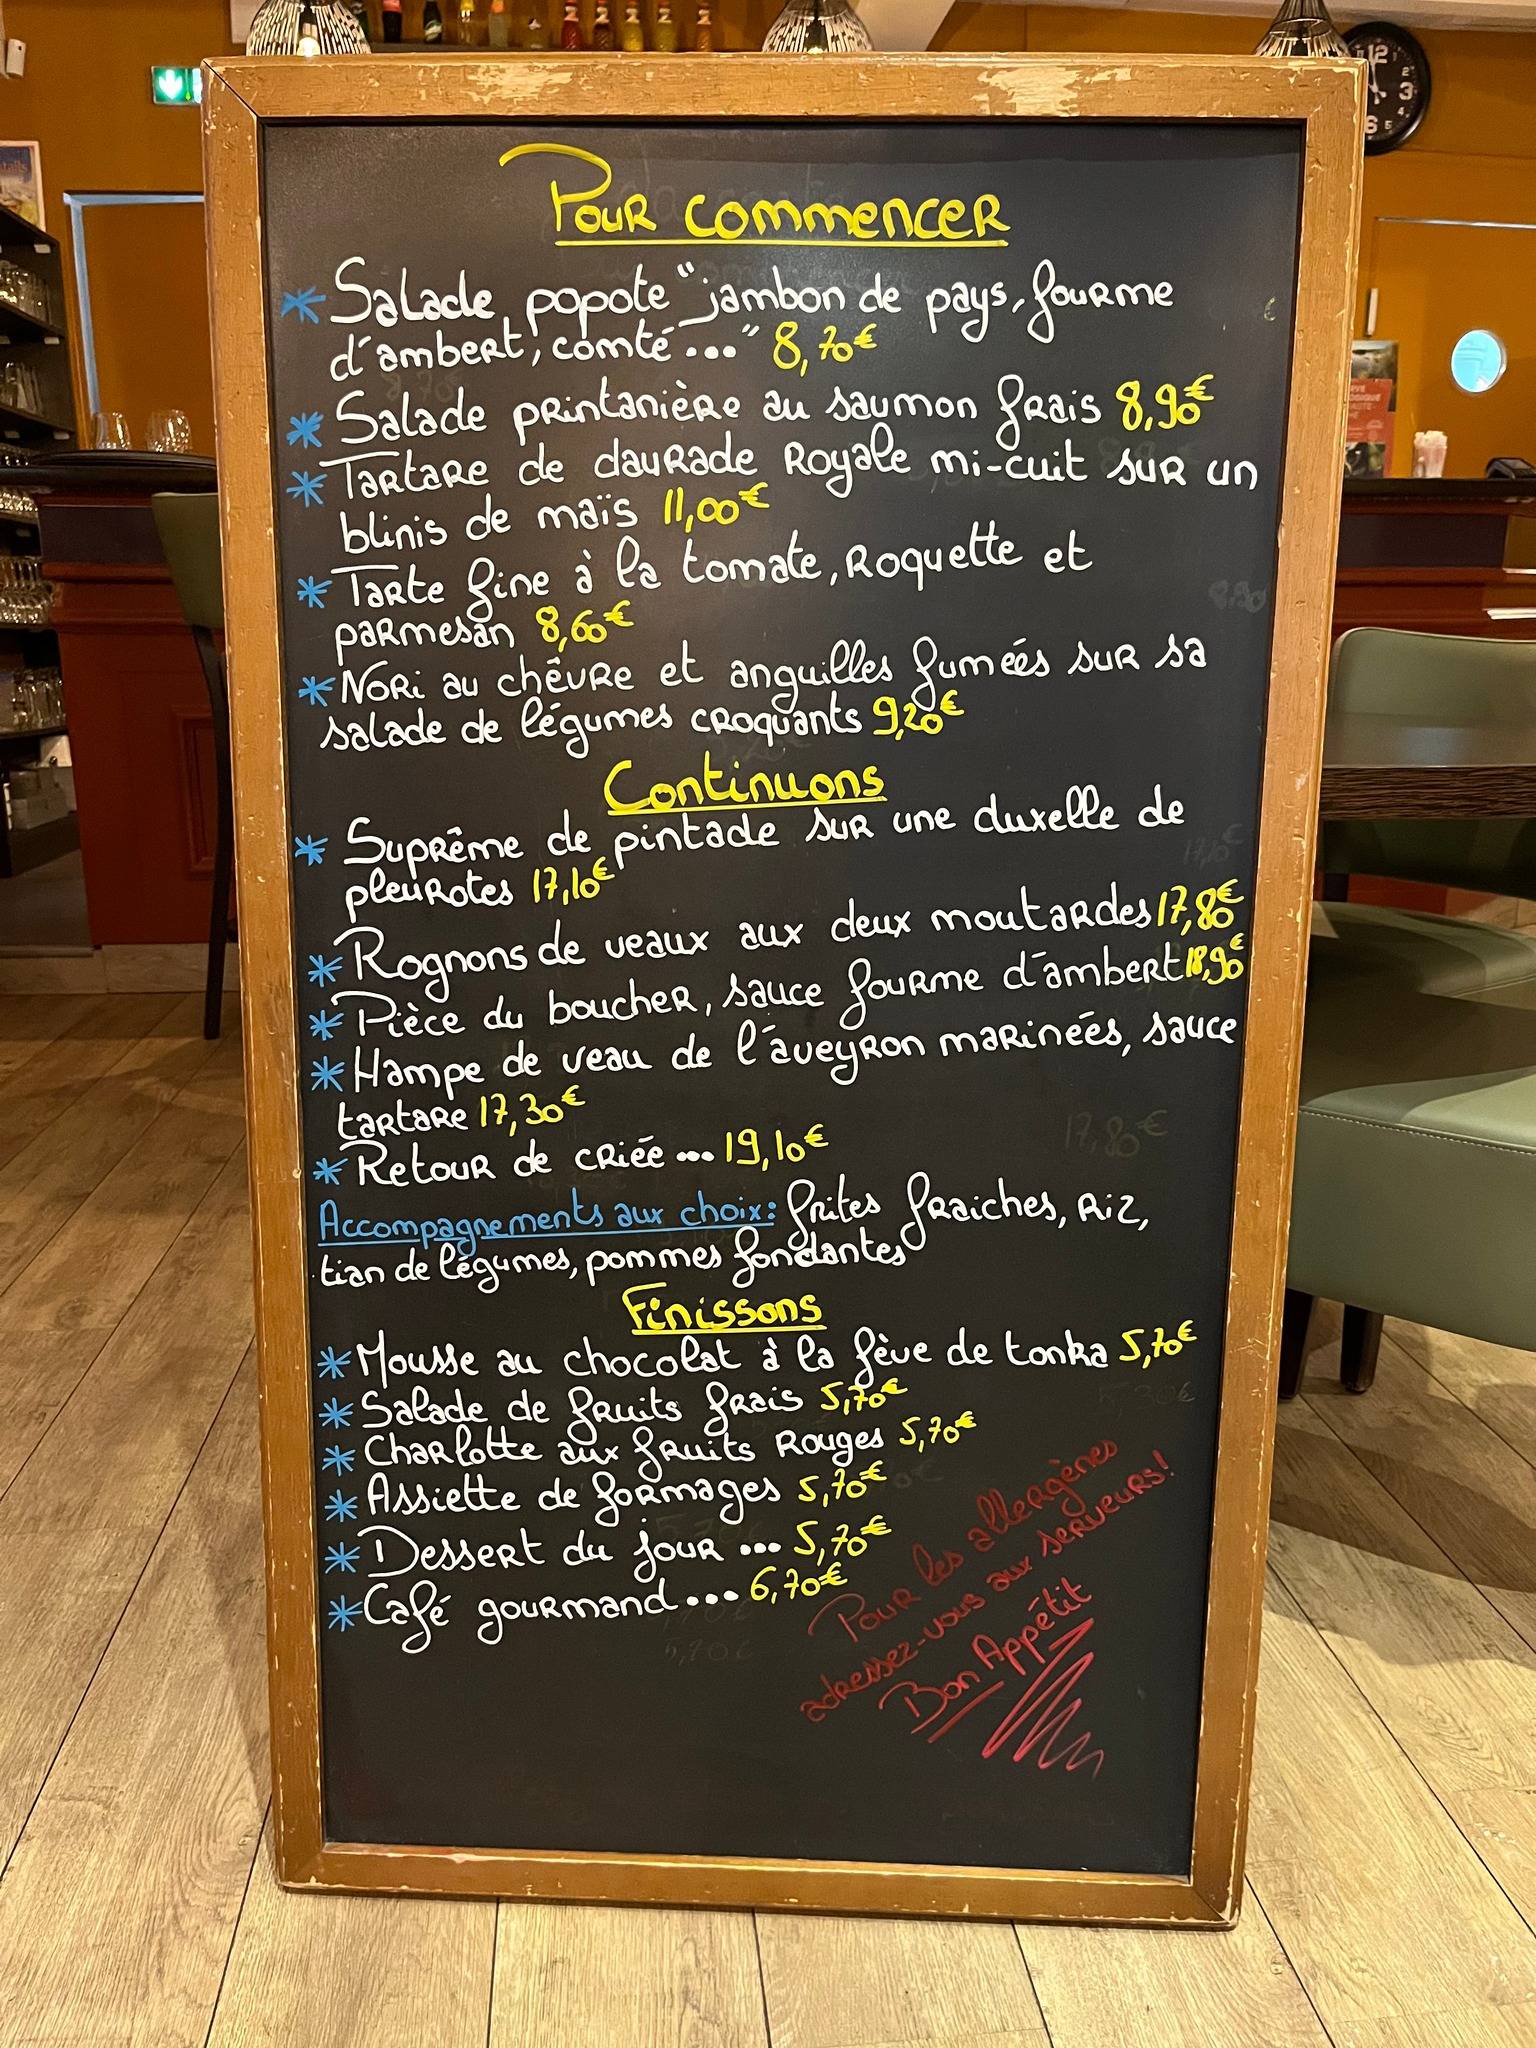 Pour commencer
* Salade popote "jambon de pays, fourme
d'ambert, comté..." 8,70€
* Salade printanière au saumon frais 8,90€
* Tartare de daurade Royale mi-cuit sur un
blinis de maïs 11,00€
* Tarte fine à la tomate, roquette et
parmesan 8,60€
* Nori au chêvre et anguilles fumées sur sa
salade de légumes croquants 9,20€
Continuons
* Suprême de pintade sur une duxelle de
pleurotes 17,10€
* Rognons de veaux aux deux moutardes 17,80€
* Pièce du boucher, sauce fourme d'ambert 18,90€
* Hampe de veau de l'aveyron marineés, sauce
tartare 17,30€
* Retour de criée... 19,10€
Accompagnements aux choix: frites fraiches, riz,
tian de légumes, pommes fondantes
Finissons
* Mousse au chocolat à la fève de tonka 5,70€
* Salade de fruits frais 5,70€
* Charlotte aux fruits rouges 5,70€
* Assiette de formages 5,70€
* Dessert du jour ... 5,70€
* Café gourmand... 6,70€
Pour les allergènes
adressez-vous aux serveurs!
Bon Appétit